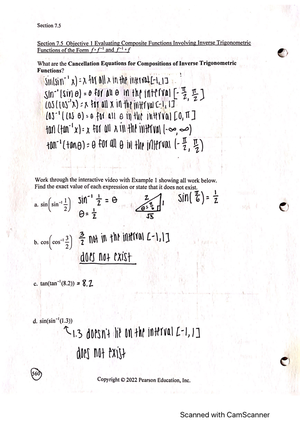 Section 7.5
Section 7.5 Objective 1 Evaluating Composite Functions Involving Inverse Trigonometric
Functions of the Form f∘f⁻¹ and f⁻¹∘f
What are the Cancellation Equations for Compositions of Inverse Trigonometric
Functions?
sin(sin⁻¹ x) = x for all x in the interval [-1, 1]
sin⁻¹(sin θ) = θ for all θ in the interval [-π/2, π/2]
cos(cos⁻¹ x) = x for all x in the interval [-1, 1]
cos⁻¹(cos θ) = θ for all θ in the interval [0, π]
tan(tan⁻¹ x) = x for all x in the interval (-∞, ∞)
tan⁻¹(tan θ) = θ for all θ in the interval (-π/2, π/2)
Work through the interactive video with Example 1 showing all work below.
Find the exact value of each expression or state that it does not exist.
a. sin(sin⁻¹ 1/2) sin⁻¹ 1/2 = θ 2 1 √3 sin(π/6) = 1/2
θ = 1/2
b. cos(cos⁻¹ 3/2) 3/2 not in the interval [-1, 1]
does not exist
c. tan(tan⁻¹(8.2)) = 8.2
d. sin(sin⁻¹(1.3))
1.3 doesn't lie on the interval [-1, 1]
does not exist
360
Copyright © 2022 Pearson Education, Inc.
Scanned with CamScanner